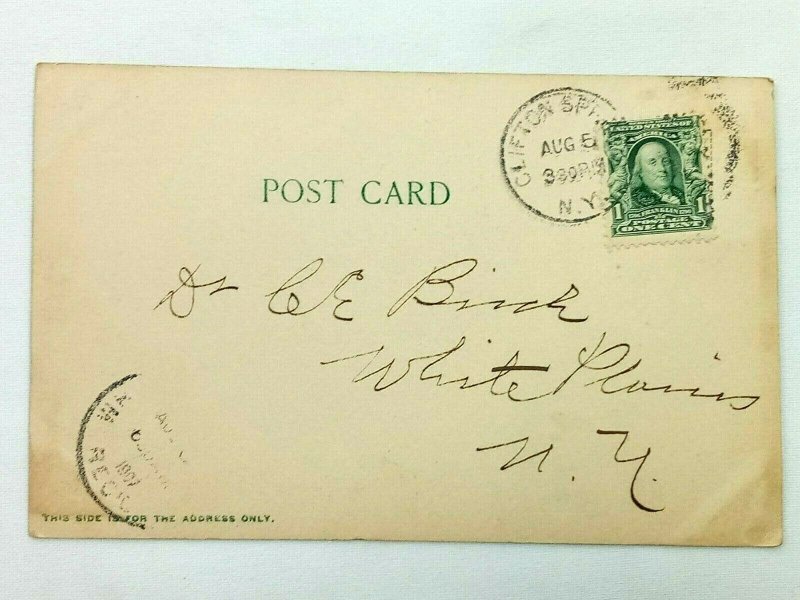 CLIFTON SP
AUG 5
330 PM
N.Y.
UNITED STATES OF
AMERICA
1 FRANKLIN 1
POSTAGE
ONE CENT
POST CARD
Dr C E Birch
White Plains
N. Y.
1907
REC'D
THIS SIDE IS FOR THE ADDRESS ONLY.